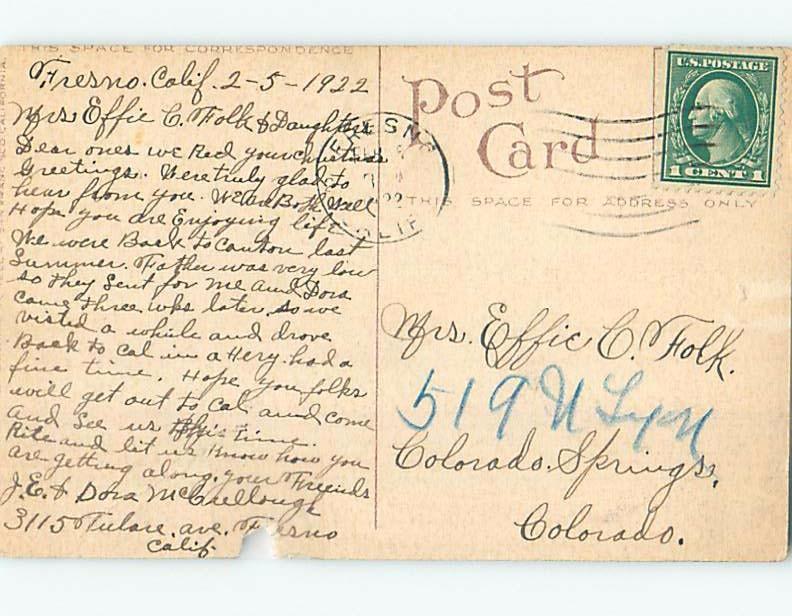 THIS SPACE FOR CORRESPONDENCE
Fresno. Calif. 2-5-1922
Mrs Effie C. Folk & Daughters
Dear ones we Recd your christmas
Greetings. Were truly glad to
hear from you. We are Both Well
Hope you are Enjoying life
We were Back to Canton last
Summer. Father was very low
so they Sent for me and Dora
came three wks later, so we
visted a while and drove
Back to Cal in a Hery. had a
fine time. Hope you folks
will get out to Cal and come
and See us time.
Rite and let us Know how you
are getting along, your Friends
J. E. & Dora McCrellough
3115 Tulare. ave. Fresno
Calif.
Post
Card
THIS SPACE FOR ADDRESS ONLY
U.S. POSTAGE
1 CENT 1
FRESNO
22
CALIF
Mrs. Effie C. Folk.
519 N
Colorado. Springs,
Colorado.